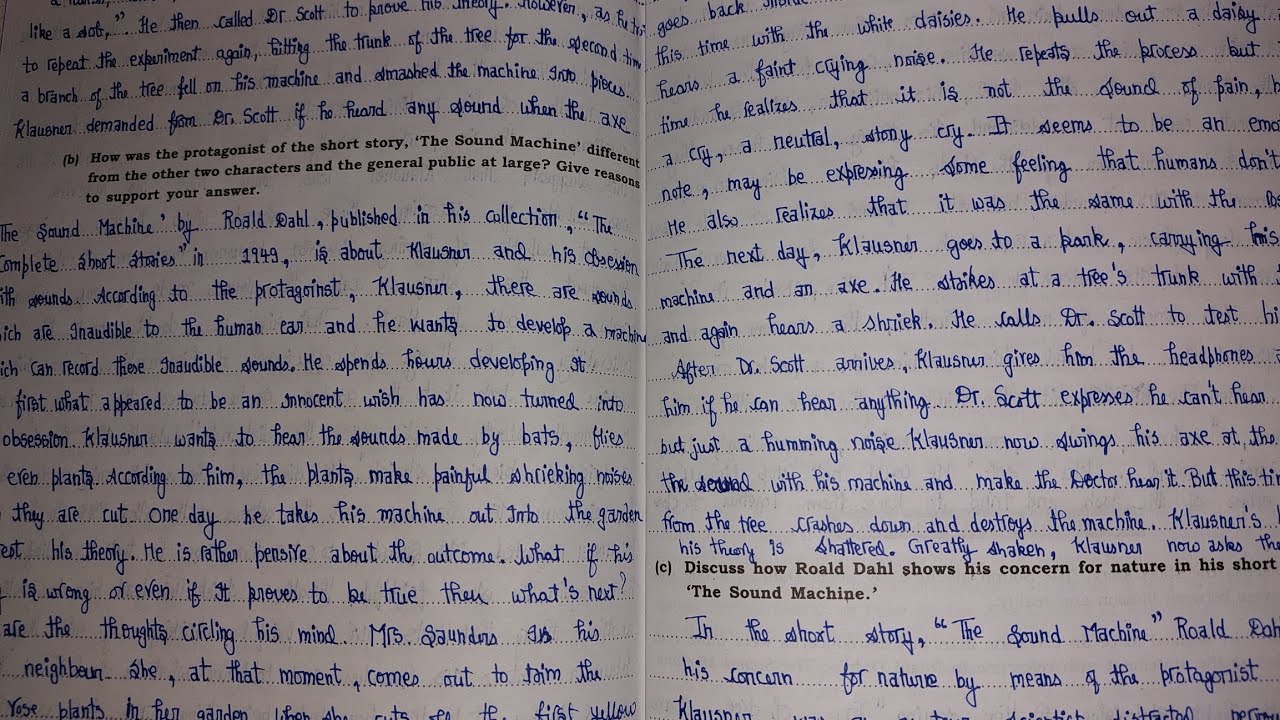 like a dot," He then called Dr. Scott to prove his theory. However, as he
to repeat the experiment again, hitting the trunk of the tree for the second time
a branch of the tree fell on his machine and smashed the machine into pieces.
Klausner demanded from Dr. Scott if he heard any sound when the axe
(b) How was the protagonist of the short story, 'The Sound Machine' different
from the other two characters and the general public at large? Give reasons
to support your answer.
The Sound Machine' by Roald Dahl, published in his collection, "The
Complete Short Stories" in 1949, is about Klausner and his obsession
ith sounds. According to the protagoinst, Klausner, there are sounds
ich are inaudible to the human ear and he wants to develop a machine
ich can record these inaudible sounds. He spends hours developing it
first what appeared to be an innocent wish has now turned into
obsession Klausner wants to hear the sounds made by bats, flies
even plants. According to him, the plants make painful shrieking noises
they are cut. One day he takes his machine out into the garden
est his theory. He is rather pensive about the outcome. What if his
is wrong or even if it proves to be true then what's next?
are the thoughts circling his mind. Mrs. Saunders is his
neighbour. She, at that moment, comes out to trim the
rose plants in her garden When she cuts the first yellow
goes back
this time with the white daisies. He pulls out a daisy
hears a faint crying noise. He repeats the process but
time he realizes that it is not the sound of pain, b
a cry, a neutral, stony cry. It seems to be an emo
note, may be expressing some feeling that humans don't
He also realizes that it was the same with the
The next day, Klausner goes to a park, carrying his
machine and an axe. He strikes at a tree's trunk with
and again hears a shriek. He calls Dr. Scott to test hi
After Dr. Scott arrives, Klausner gives him the headphones
him if he can hear anything. Dr. Scott expresses he can't hear
but just a humming noise. Klausner now swings his axe at the
the second with his machine and make the Doctor hear it. But this ti
from the tree crashes down and destroys the machine. Klausner's
his theory is shattered. Greatly shaken, Klausner now asks the
(c) Discuss how Roald Dahl shows his concern for nature in his short
'The Sound Machine.'
In the short story, "The Sound Machine" Roald Dah
his concern for nature by means of the protagonist
Klausner was scientist distracted